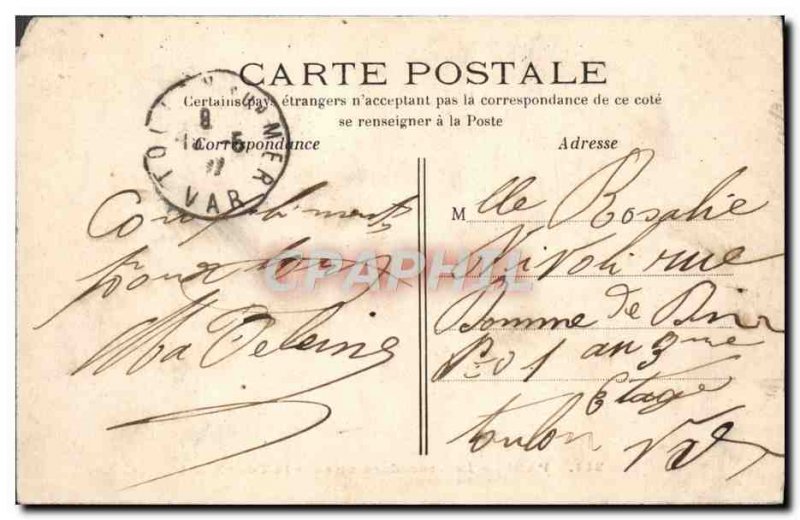 CARTE POSTALE
Certains pays étrangers n'acceptant pas la correspondance de ce coté
se renseigner à la Poste
Correspondance
Adresse
TOULON SUR MER
8
5
VAR
Compliments
pour tous
CPAPHIL
Mlle Rosalie
Nivoli rue
Pomme de Pin
No 1 au 3 eme
Etage
toulon Var